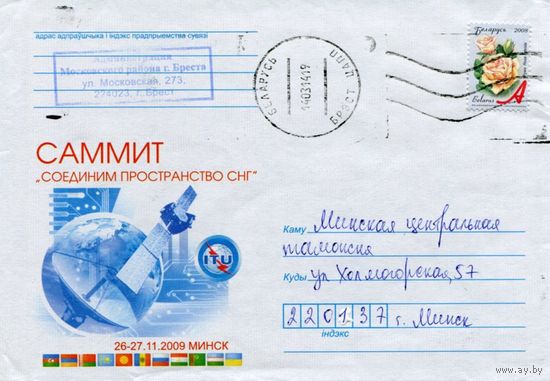 адрас адпраўшчыка і індэкс прадпрыемства сувязі
Администрация
Московского района г. Бреста
ул. Московская, 273,
224023, г. Брест
БЕЛАРУСЬ
140314 19
БРЕСТ
Беларусь 2008
Belarus A
САММИТ
„СОЕДИНИМ ПРОСТРАНСТВО СНГ"
ITU
26-27.11.2009 МИНСК
Каму Минская центральная
таможня
Куды ул Холмогорская, 57
220137 г. Минск
індэкс
www.ay.by